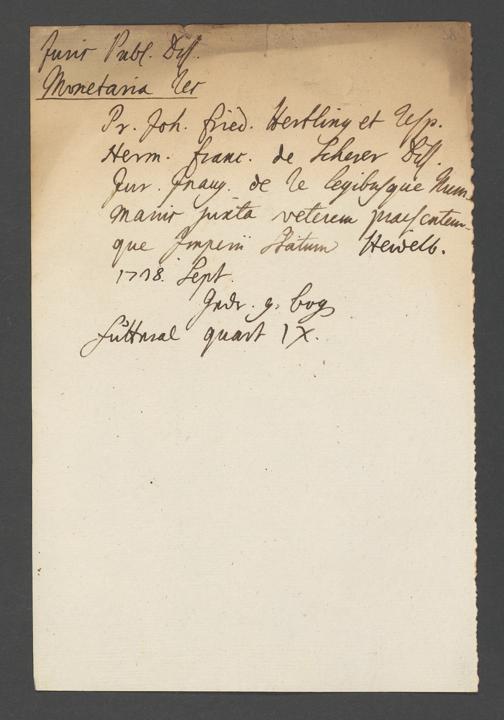 Juris Publ. Diss.
Monetaria Res
Pr. Joh. Fried. Hertling et Resp.
Herm. Franc. de Scherer Diss.
Jur. Inaug. de Re legibusque Num-
mariis juxta veterem praesentem-
que Imperii Statum Heidelb.
1738. Sept.
9. bog
Futteral quart IX.